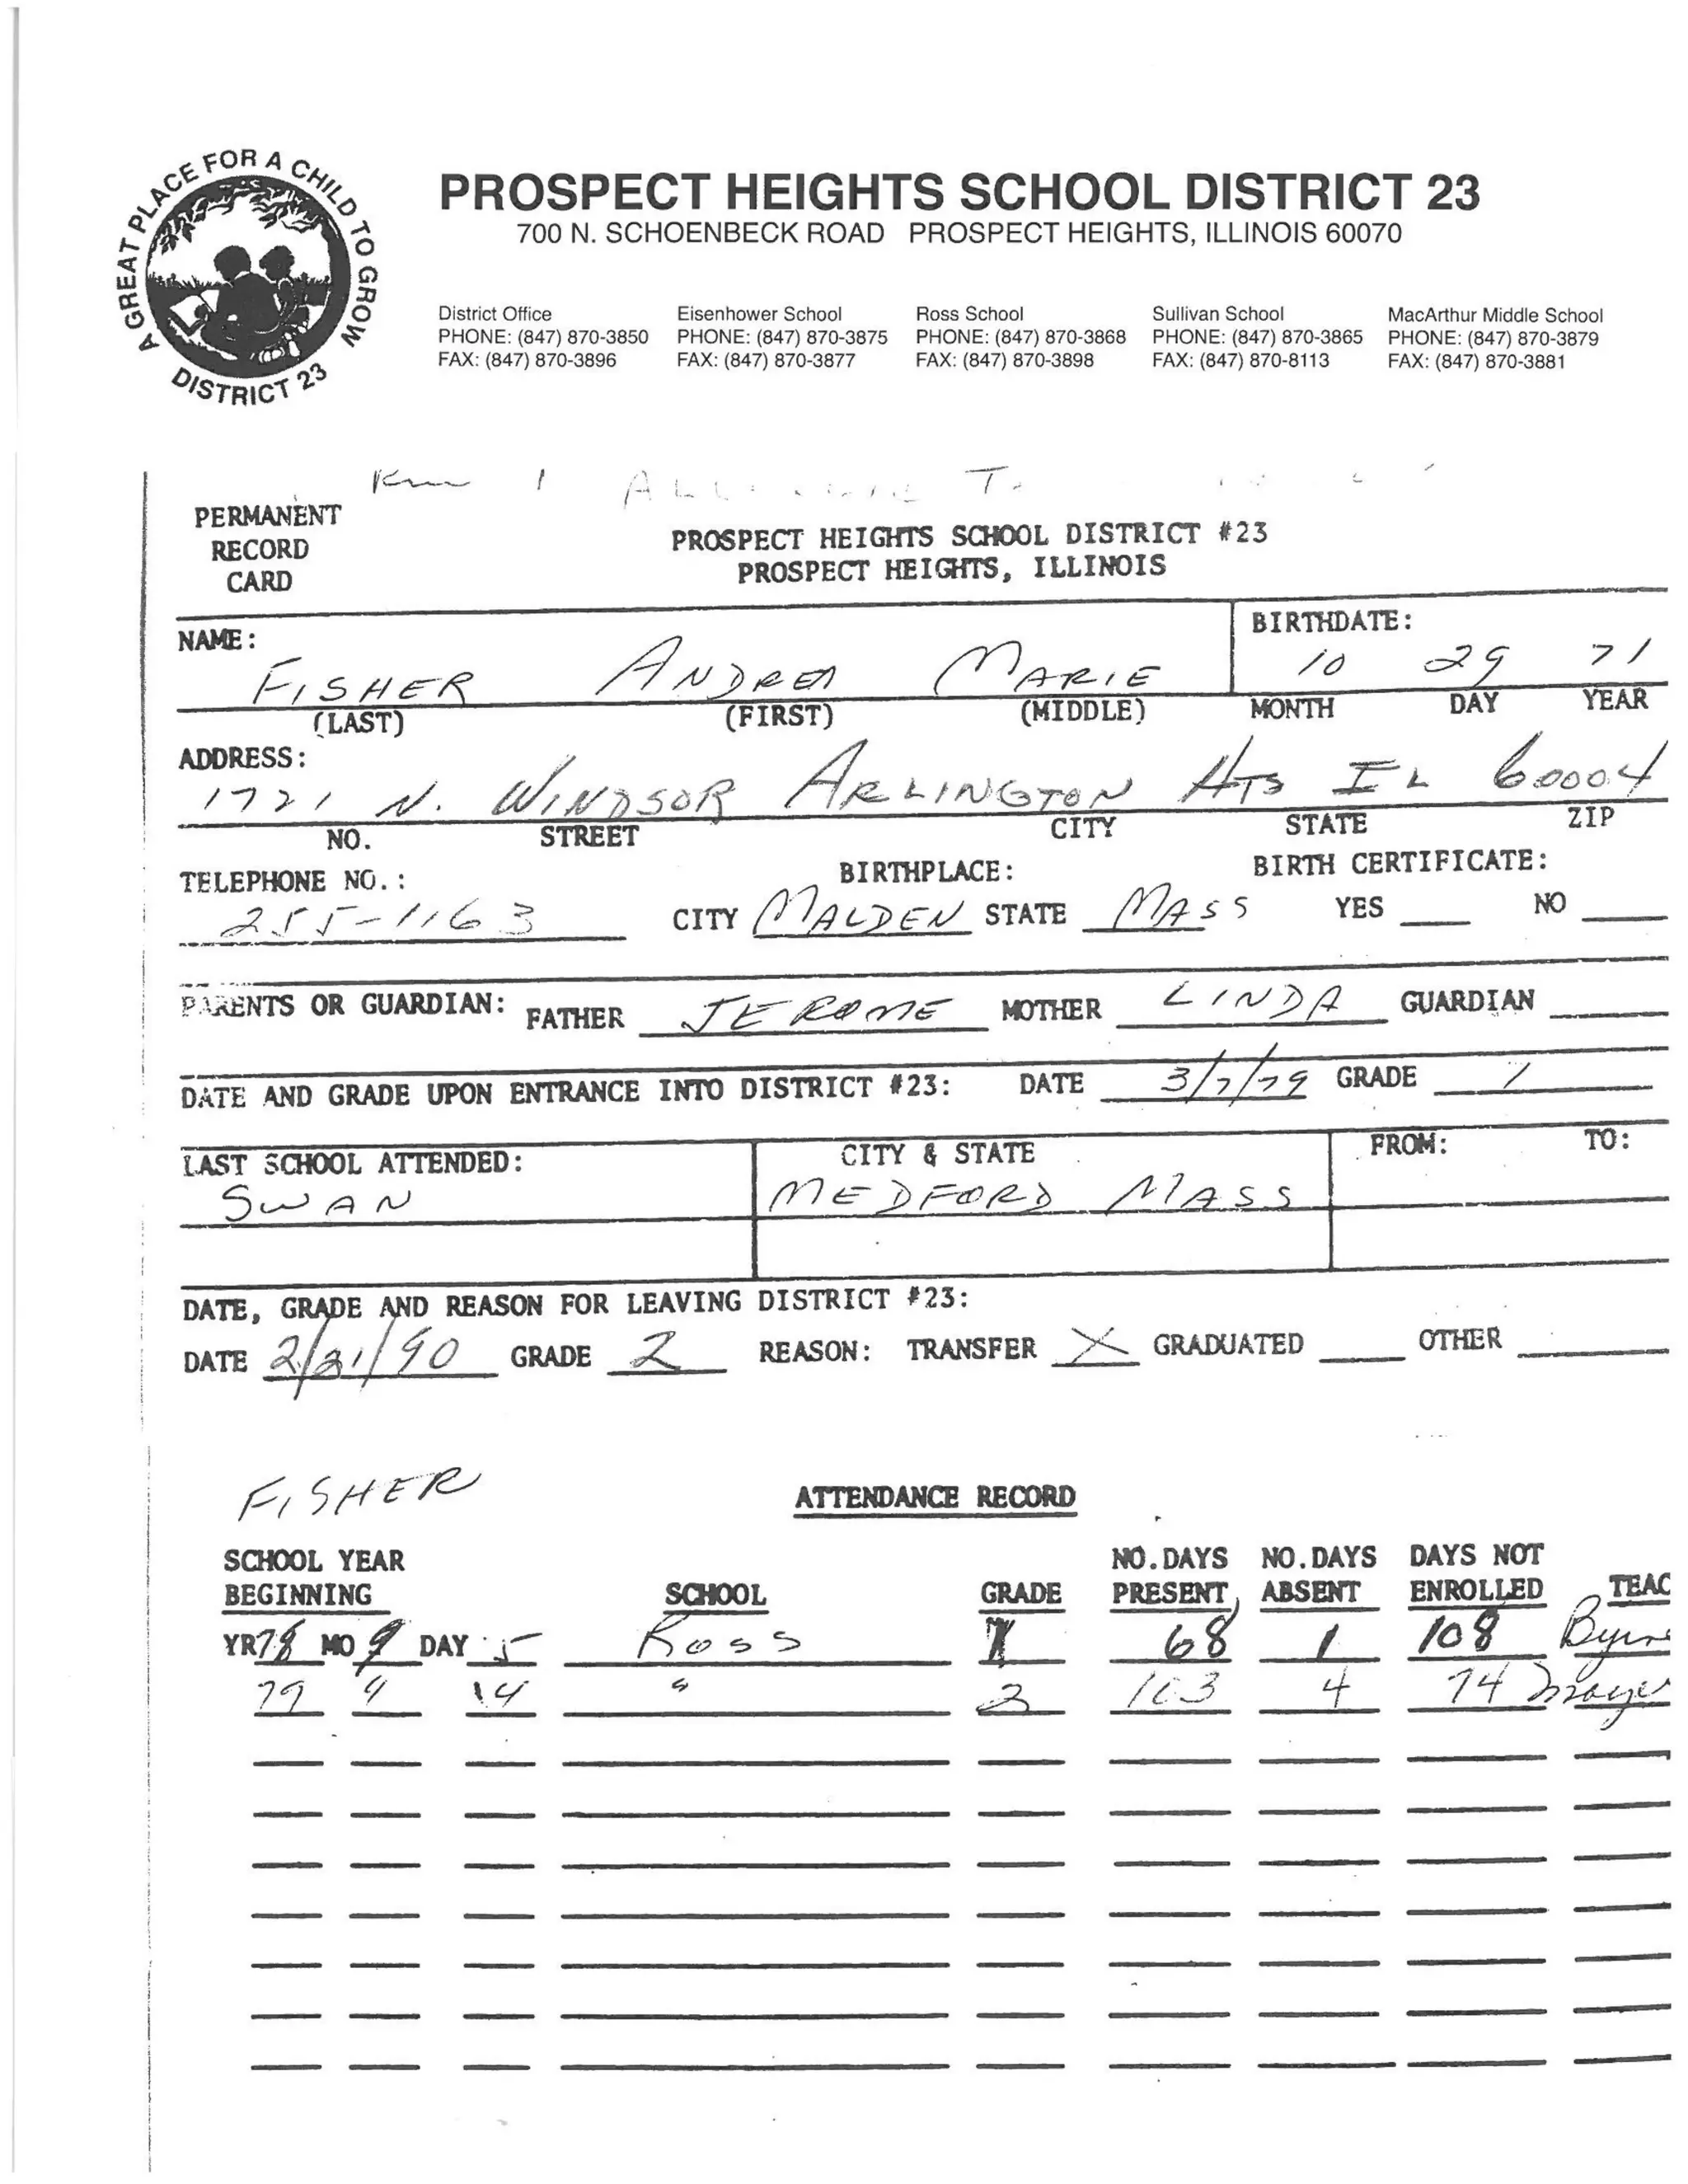 A GREAT PLACE FOR A CHILD TO GROW
DISTRICT 23
PROSPECT HEIGHTS SCHOOL DISTRICT 23
700 N. SCHOENBECK ROAD PROSPECT HEIGHTS, ILLINOIS 60070
District Office Eisenhower School Ross School Sullivan School MacArthur Middle School
PHONE: (847) 870-3850 PHONE: (847) 870-3875 PHONE: (847) 870-3868 PHONE: (847) 870-3865 PHONE: (847) 870-3879
FAX: (847) 870-3896 FAX: (847) 870-3877 FAX: (847) 870-3898 FAX: (847) 870-8113 FAX: (847) 870-3881
PERMANENT
RECORD
CARD
PROSPECT HEIGHTS SCHOOL DISTRICT #23
PROSPECT HEIGHTS, ILLINOIS
NAME: BIRTHDATE:
FISHER ANDREA MARIE 10 29 71
(LAST) (FIRST) (MIDDLE) MONTH DAY YEAR
ADDRESS:
1721 N. WINDSOR ARLINGTON HTS IL 60004
NO. STREET CITY STATE ZIP
TELEPHONE NO.: BIRTHPLACE: BIRTH CERTIFICATE:
255-1163 CITY MALDEN STATE MASS YES NO
PARENTS OR GUARDIAN: FATHER JEROME MOTHER LINDA GUARDIAN
DATE AND GRADE UPON ENTRANCE INTO DISTRICT #23: DATE 3/7/79 GRADE 1
LAST SCHOOL ATTENDED: CITY & STATE FROM: TO:
SWAN MEDFORD MASS
DATE, GRADE AND REASON FOR LEAVING DISTRICT #23:
DATE 2/21/90 GRADE 2 REASON: TRANSFER X GRADUATED OTHER
FISHER ATTENDANCE RECORD
SCHOOL YEAR NO.DAYS NO.DAYS DAYS NOT
BEGINNING SCHOOL GRADE PRESENT ABSENT ENROLLED TEAC
YR78 MO 9 DAY 5 Ross 1 68 1 108
79 " 14 " 2 103 4 74